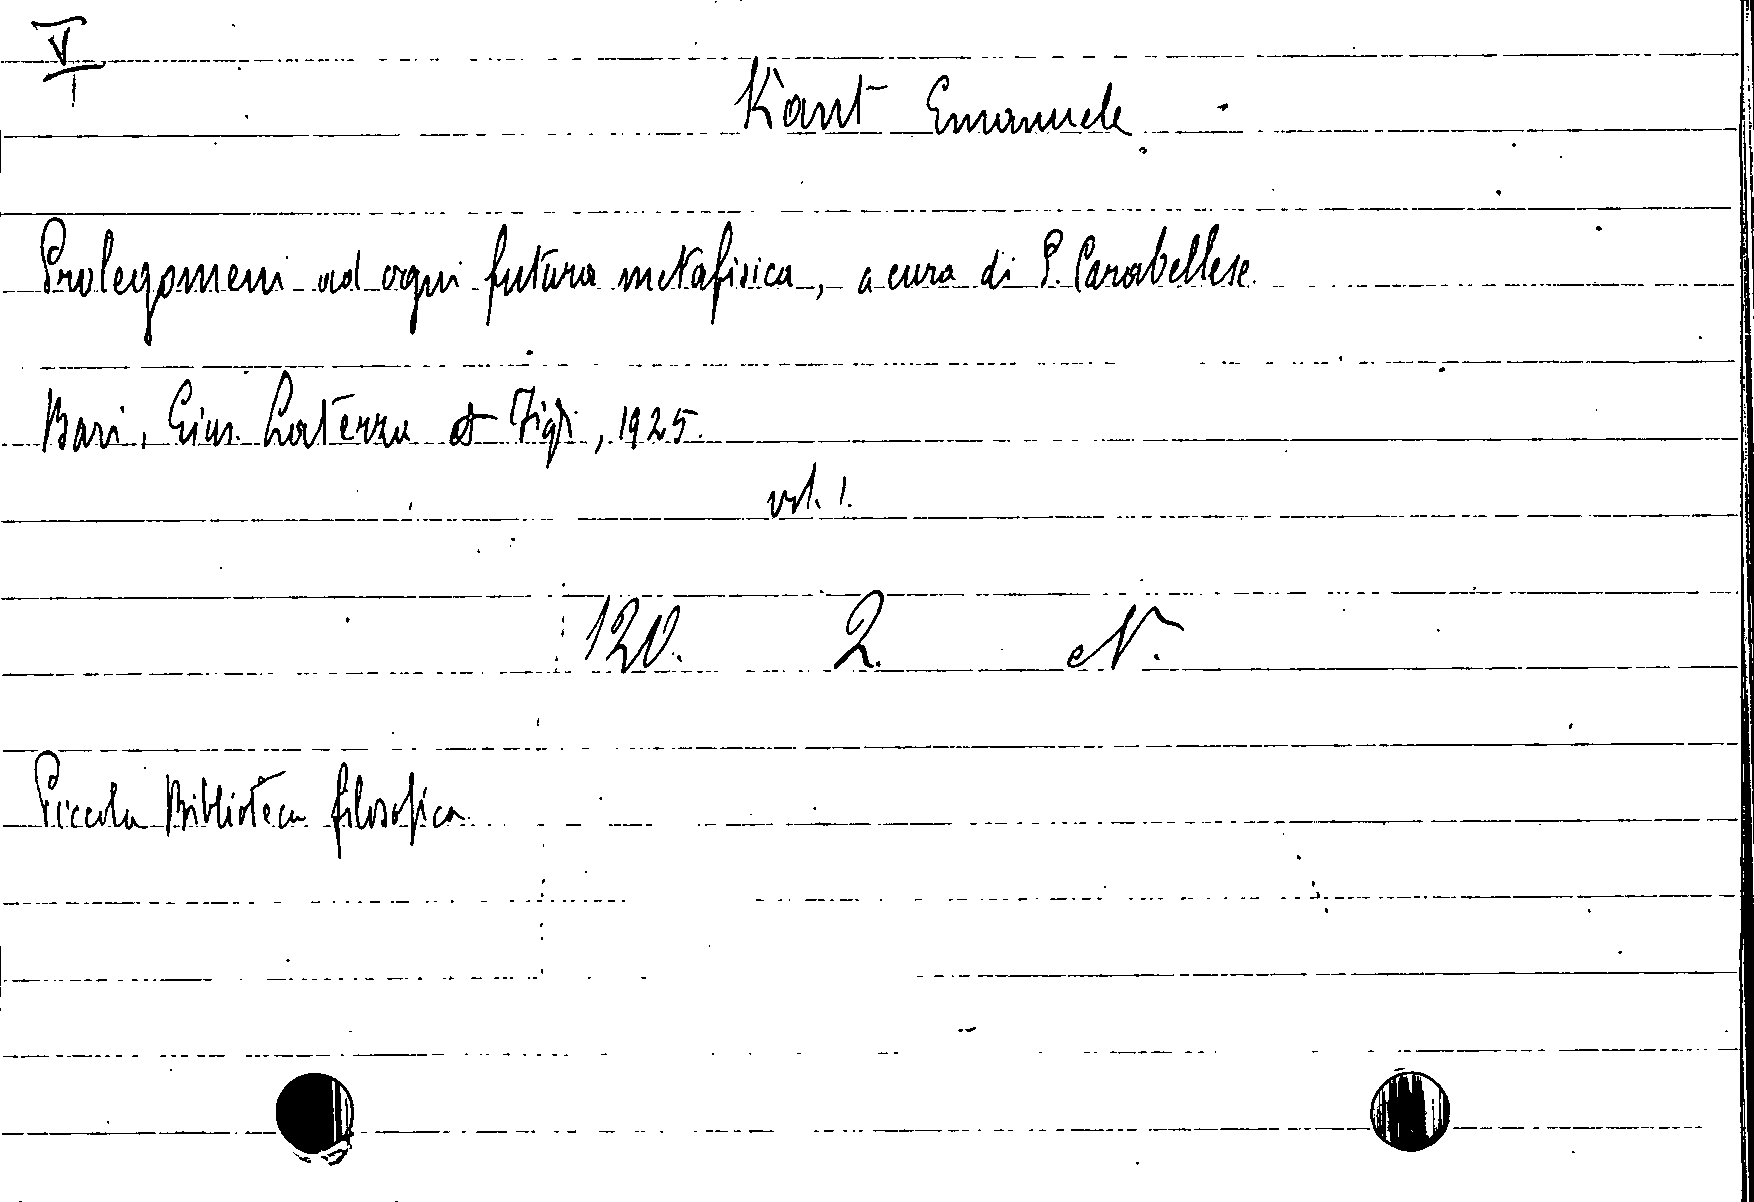 V
1
Kant Emanuele
Prolegomeni ad ogni futura metafisica, a cura di P. Carabellese.
Bari, Gius. Laterza et Figli, 1925.
vol. 1.
120. 2. N.
Piccola Biblioteca filosofica